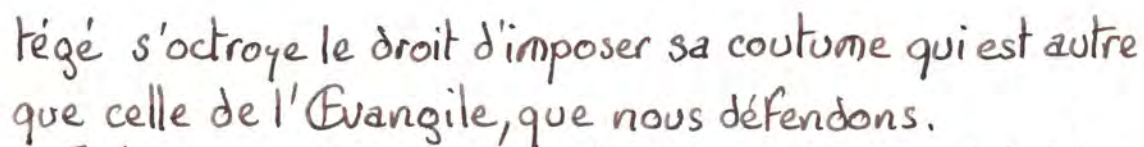 tégé s'octroye le droit d'imposer sa coutume qui est autre
que celle de l'Evangile, que nous défendons.